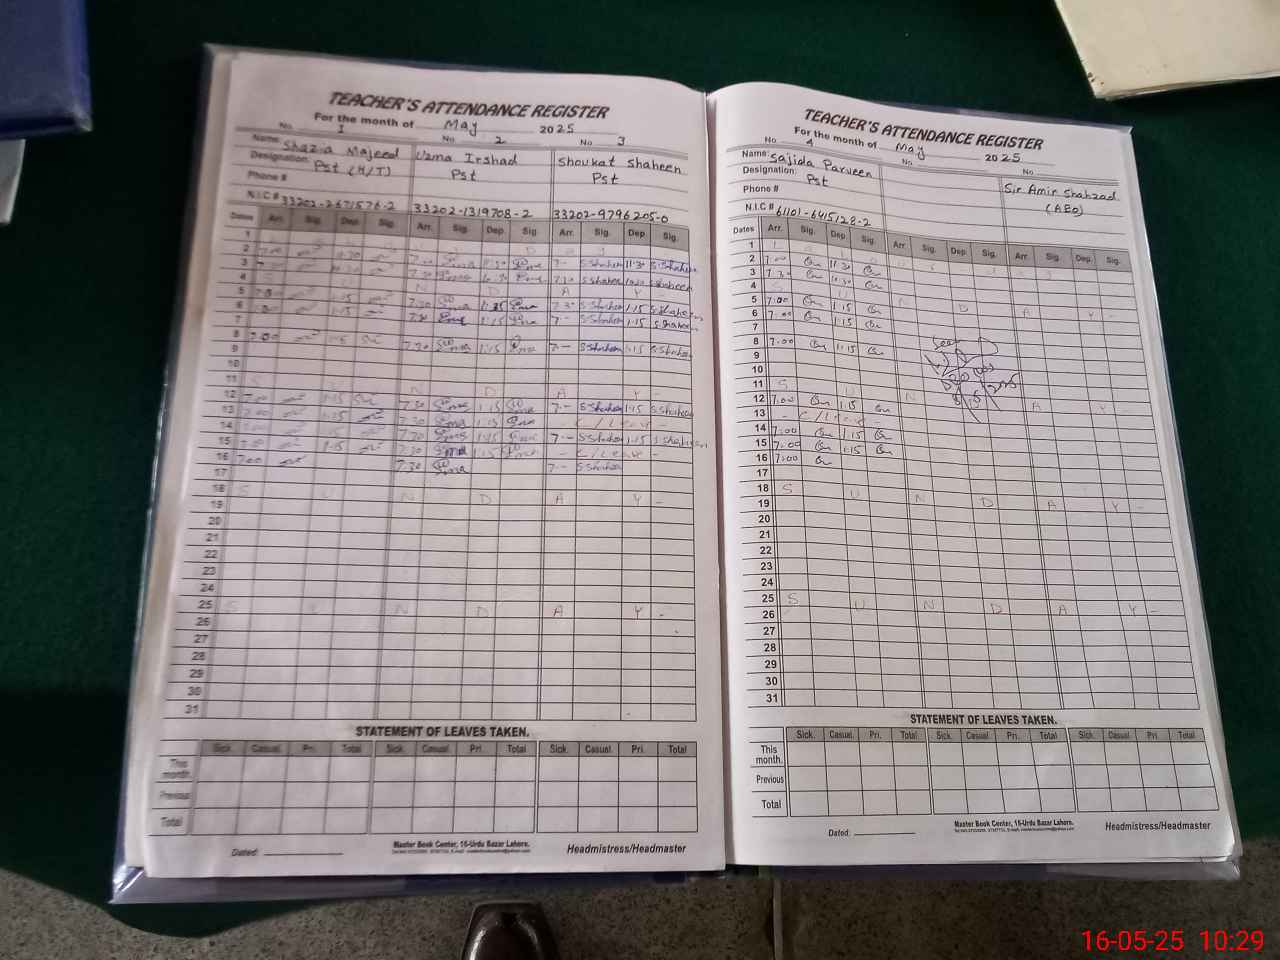 TEACHER'S ATTENDANCE REGISTER
For the month of May 2025
No. 1 No 2 No 3
Name: Shazia Majeed Uzma Irshad Shoukat Shaheen
Designation: Pst (H/T) Pst Pst
Phone #
N.I.C # 33202-2671576-2 33202-1319708-2 33202-9796205-0
Dates Arr. Sig. Dep. Sig. Arr. Sig. Dep. Sig. Arr. Sig. Dep. Sig.
1
2 7.00 11:30 7.00 11:30 7- S Shaheen 11:30 S.Shaheen
3 7.30 7.30 S Shaheen S Shaheen
4 S U N D A Y -
5 7.00 1:15 7.30 1:15 7.30 S Shaheen 1.15 S Shaheen
6 7.00 1:15 7.30 1:15 7- S Shaheen 1.15 S Shaheen
7
8 7.00 1:15 7.30 1:15 7- S Shaheen 1.15 S Shaheen
9
10
11 S U N D A Y
12 7.00 1:15 7.30 1:15 7- S Shaheen 1.15 S Shaheen
13 7.00 1:15 7.30 1:15 - C/Leave -
14 7.00 7.30 1:15 7- S Shaheen 1.15 S Shaheen
15 7.00 1:15 7.30 1:15 - C/Leave -
16 7.00 7.30 7- S Shaheen
17
18 S U N D A Y -
19
20
21
22
23
24
25 S U N D A Y -
26
27
28
29
30
31
STATEMENT OF LEAVES TAKEN.
Sick. Casual. Pri. Total Sick. Casual. Pri. Total Sick. Casual. Pri. Total
This month.
Previous
Total
Dated:
Master Book Center, 16-Urdu Bazar Lahore.
Headmistress/Headmaster
TEACHER'S ATTENDANCE REGISTER
For the month of May 2025
No 4 No. No.
Name: Sajida Parveen
Designation: Pst Sir Amir Shahzad
Phone # (AEO)
N.I.C # 61101-6415128-2
Dates Arr. Sig. Dep. Sig. Arr. Sig. Dep. Sig. Arr. Sig. Dep. Sig.
1
2 7.00 11:30
3 7.30 10:30
4 S U N D A Y -
5 7.00 1:15
6 7.00 1:15
7
8 7.00 1:15
9
10
11 S U N D A Y
12 7.00 1:15
13 - C/Leave -
14 7.00 1:15
15 7.00 1:15
16 7.00
17
18 S U N D A Y -
19
20
21
22
23
24
25 S U N D A Y -
26
27
28
29
30
31
STATEMENT OF LEAVES TAKEN.
Sick. Casual. Pri. Total Sick. Casual. Pri. Total Sick. Casual. Pri Total
This month.
Previous
Total
Dated:
Master Book Center, 16-Urdu Bazar Lahore.
Headmistress/Headmaster
16-05-25 10:29